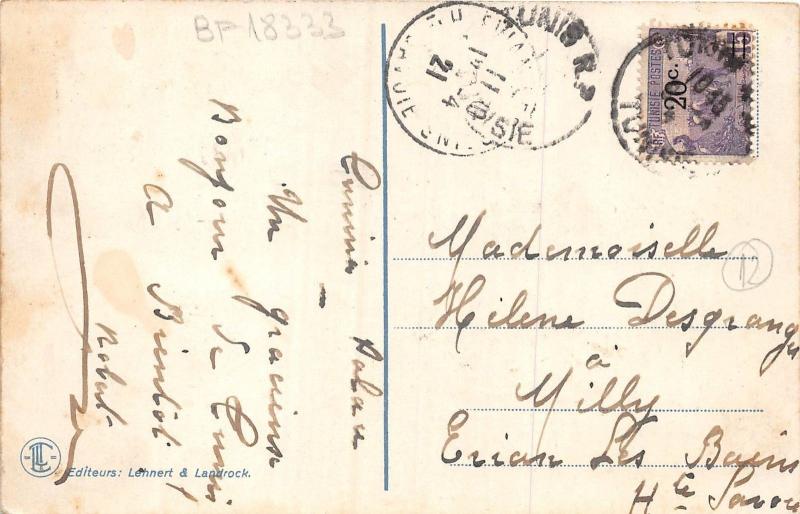 BF-18333
Tunisia Palace
Un gracieux
Bonjour de Tunis
A Bientôt
Robert
Editeurs: Lehnert & Landrock.
TUNIS R.P
TUNISIE POSTES
20c.
Mademoiselle
Hélène Desgranges
à
Milly
Evian Les Bains
Hte Savoie
12